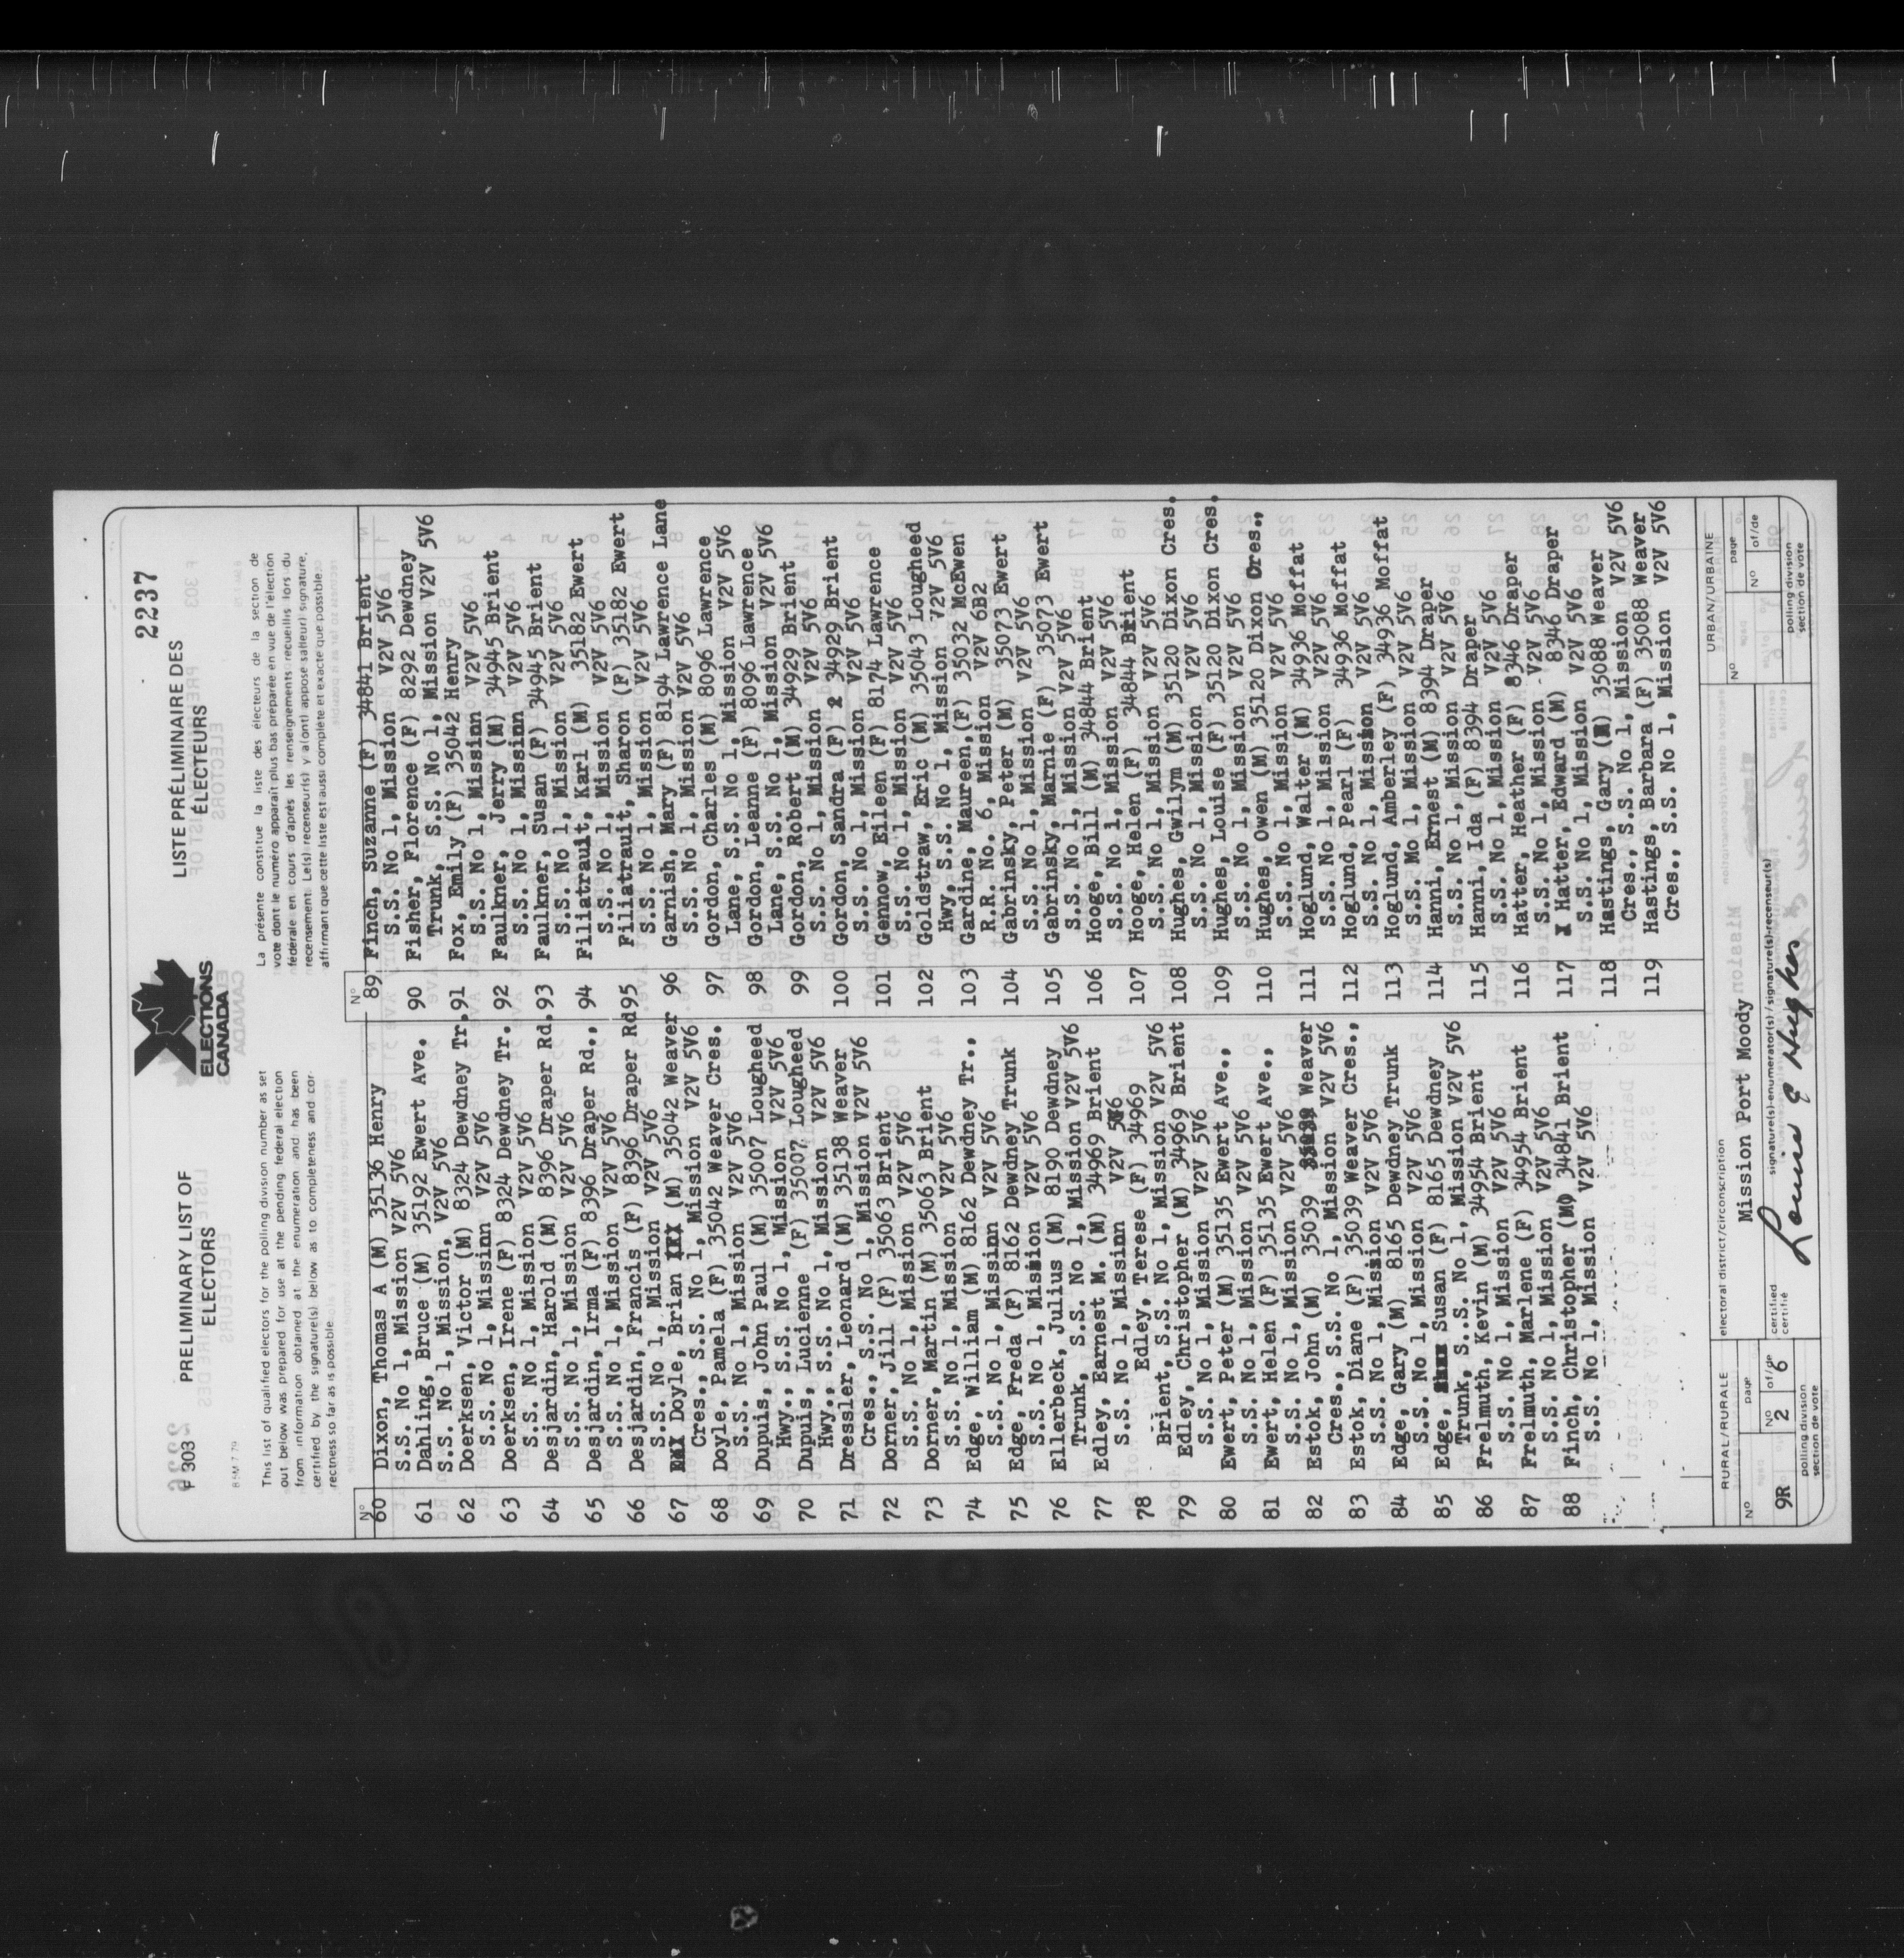 2237
F 303
PRELIMINARY LIST OF
ELECTORS
ELECTIONS
CANADA
LISTE PRÉLIMINAIRE DES
ÉLECTEURS
This list of qualified electors for the polling division number as set
out below was prepared for use at the pending federal election
from information obtained at the enumeration and has been
certified by the signature(s) below as to completeness and cor-
rectness so far as is possible.
La présente constitue la liste des électeurs de la section de
vote dont le numéro apparaît plus bas préparée en vue de l'élection
fédérale en cours d'après les renseignements recueillis lors du
recensement. Le(s) recenseur(s) y a(ont) apposé sa(leur) signature,
affirmant que cette liste est aussi complète et exacte que possible.
No
60 Dixon, Thomas A (M) 35136 Henry
S.S. No 1, Mission V2V 5V6
61 Dahling, Bruce (M) 35192 Ewert Ave.
S.S. No 1, Mission, V2V 5V6
62 Doerksen, Victor (M) 8324 Dewdney Tr.
S.S. No 1, Missinn V2V 5V6
63 Doerksen, Irene (F) 8324 Dewdney Tr.
S.S. No 1, Mission V2V 5V6
64 Desjardin, Harold (M) 8396 Draper Rd.
S.S. No 1, Mission V2V 5V6
65 Desjardin, Irma (F) 8396 Draper Rd.,
S.S. No 1, Mission V2V 5V6
66 Desjardin, Francis (F) 8396 Draper Rd
S.S. No 1, Mission V2V 5V6
67 Doyle, Brian (M) 35042 Weaver
Cres., S.S. No 1, Mission V2V 5V6
68 Doyle, Pamela (F) 35042 Weaver Cres.
S.S. No 1, Mission V2V 5V6
69 Dupuis, John Paul (M) 35007 Lougheed
Hwy., S.S. No 1, Mission V2V 5V6
70 Dupuis, Lucienne (F) 35007 Lougheed
Hwy., S.S. No 1, Mission V2V 5V6
71 Dressler, Leonard (M) 35138 Weaver
Cres., S.S. No 1, Mission V2V 5V6
72 Dorner, Jill (F) 35063 Brient
S.S. No 1, Mission V2V 5V6
73 Dorner, Martin (M) 35063 Brient
S.S. No 1, Mission V2V 5V6
74 Edge, William (M) 8162 Dewdney Tr.,
S.S. No 1, Missinn V2V 5V6
75 Edge, Freda (F) 8162 Dewdney Trunk
S.S. No 1, Mission V2V 5V6
76 Ellerbeck, Julius (M) 8190 Dewdney
Trunk, S.S. No 1, Mission V2V 5V6
77 Edley, Earnest M. (M) 34969 Brient
S.S. No 1, Missinn V2V 5V6
78 Edley, Terese (F) 34969
Brient, S.S. No 1, Mission V2V 5V6
79 Edley, Christopher (M) 34969 Brient
S.S. No 1, Mission V2V 5V6
80 Ewert, Peter (M) 35135 Ewert Ave.,
S.S. No 1, Mission V2V 5V6
81 Ewert, Helen (F) 35135 Ewert Ave.,
S.S. No 1, Mission V2V 5V6
82 Estok, John (M) 35039 Weaver
Cres., S.S. No 1, Mission V2V 5V6
83 Estok, Diane (F) 35039 Weaver Cres.,
S.S. No 1, Mission V2V 5V6
84 Edge, Gary (M) 8165 Dewdney Trunk
S.S. No 1, Mission V2V 5V6
85 Edge, Susan (F) 8165 Dewdney
Trunk, S.S. No 1, Mission V2V 5V6
86 Frelmuth, Kevin (M) 34954 Brient
S.S. No 1, Mission V2V 5V6
87 Frelmuth, Marlene (F) 34954 Brient
S.S. No 1, Mission V2V 5V6
88 Finch, Christopher (M) 34841 Brient
S.S. No 1, Mission V2V 5V6
No
89 Finch, Suzanne (F) 34841 Brient
S.S. No 1, Mission V2V 5V6
90 Fisher, Florence (F) 8292 Dewdney
Trunk, S.S. No 1, Mission V2V 5V6
91 Fox, Emily (F) 35042 Henry
S.S. No 1, Missinn V2V 5V6
92 Faulkner, Jerry (M) 34945 Brient
S.S. No 1, Missinn V2V 5V6
93 Faulkner, Susan (F) 34945 Brient
S.S. No 1, Mission V2V 5V6
94 Filiatrauit, Karl (M) 35182 Ewert
S.S. No 1, Mission V2V 5V6
95 Filiatrauit, Sharon (F) 35182 Ewert
S.S. No 1, Mission V2V 5V6
96 Garnish, Mary (F) 8194 Lawrence Lane
S.S. No 1, Mission V2V 5V6
97 Gordon, Charles (M) 8096 Lawrence
Lane, S.S. No 1, Mission V2V 5V6
98 Gordon, Leanne (F) 8096 Lawrence
Lane, S.S. No 1, Mission V2V 5V6
99 Gordon, Robert (M) 34929 Brient
S.S. No 1, Mission V2V 5V6
100 Gordon, Sandra (F) 34929 Brient
S.S. No 1, Mission V2V 5V6
101 Gennow, Eileen (F) 8174 Lawrence
S.S. No 1, Mission V2V 5V6
102 Goldstraw, Eric (M) 35043 Lougheed
Hwy, S.S. No 1, Mission 72V 5V6
103 Gardine, Maureen,(F) 35032 McEwen
R.R. No. 6, Mission V2V 6B2
104 Gabrinsky, Peter (M) 35073 Ewert
S.S. No 1, Mission V2V 5V6
105 Gabrinsky, Marnie (F) 35073 Ewert
S.S. No 1, Mission V2V 5V6
106 Hooge, Bill (M) 34844 Brient
S.S. No 1, Mission V2V 5V6
107 Hooge, Helen (F) 34844 Brient
S.S. No 1, Mission V2V 5V6
108 Hughes, Gwilym (M) 35120 Dixon Cres.
S.S. No 1, Mission V2V 5V6
109 Hughes, Louise (F) 35120 Dixon Cres.
S.S. No 1, Mission V2V 5V6
110 Hughes, Owen (M) 35120 Dixon Cres.,
S.S. No 1, Mission V2V 5V6
111 Hoglund, Walter (M) 34936 Moffat
S.S. No 1, Mission V2V 5V6
112 Hoglund, Pearl (F) 34936 Moffat
S.S. No 1, Mission V2V 5V6
113 Hoglund, Amberley (F) 34936 Moffat
S.S. Mo 1, Mission V2V 5V6
114 Hanni, Ernest (M) 8394 Draper
S.S. No 1, Mission V2V 5V6
115 Hanni, Ida (F) 8394 Draper
S.S. No 1, Mission V2V 5V6
116 Hatter, Heather (F) 8346 Draper
S.S. No 1, Mission V2V 5V6
117 Hatter, Edward (M) 8346 Draper
S.S. No 1, Mission V2V 5V6
118 Hastings, Gary (M) 35088 Weaver
Cres., S.S. No 1, Mission V2V 5V6
119 Hastings, Barbara (F) 35088 Weaver
Cres., S.S. No 1, Mission V2V 5V6
RURAL/RURALE
No
page
9R
No 2 of/de 6
polling division
section de vote
electoral district/circonscription
Mission Port Moody
certified
certifié
signature(s)-enumerator(s)/signature(s)-recenseur(s)
Louise E Hughes
URBAN/URBAINE
No
page
No of/de
polling division
section de vote